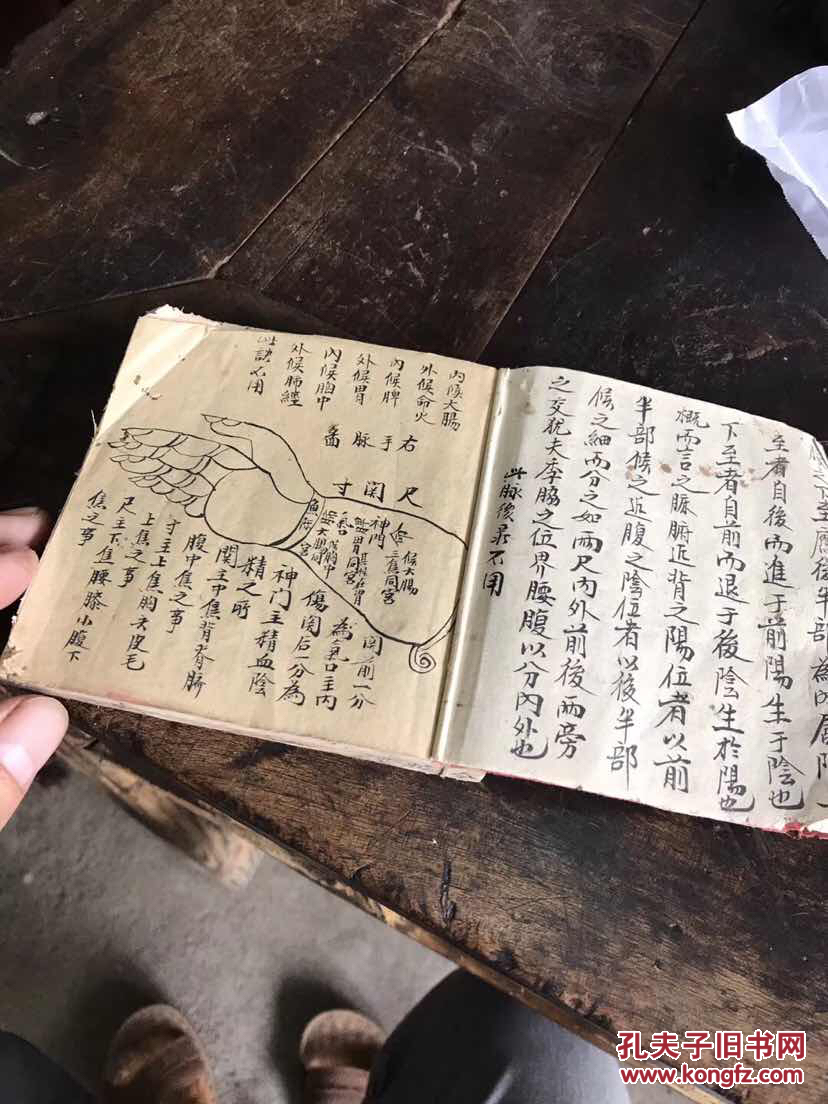 至者自後而進于前陽生于陰也
下至者自前而退于後陰生於陽也
概而言之脈腑近背之陽位者以前
半部候之近腹之陰位者以後半部
候之細而分之如兩尺內外前後兩旁
之交犹夫季脇之位界腰腹以分內外也
此脉後录不用
內候大腸
外候命火
內候脾
外候胃
內候胸中
外候肺經
此訣不用
右
手
脉
啚
尺
関
寸
候大腸
三焦同宮
神門
関前一分
為氣口主內
傷関后一分為
神门主精血陰
精之所
関主中焦背脊脇
腹中焦之事
寸主上焦胸头皮毛
上焦之事
尺主下焦腰膝小腹下
焦之事
孔夫子旧书网
www.kongfz.com